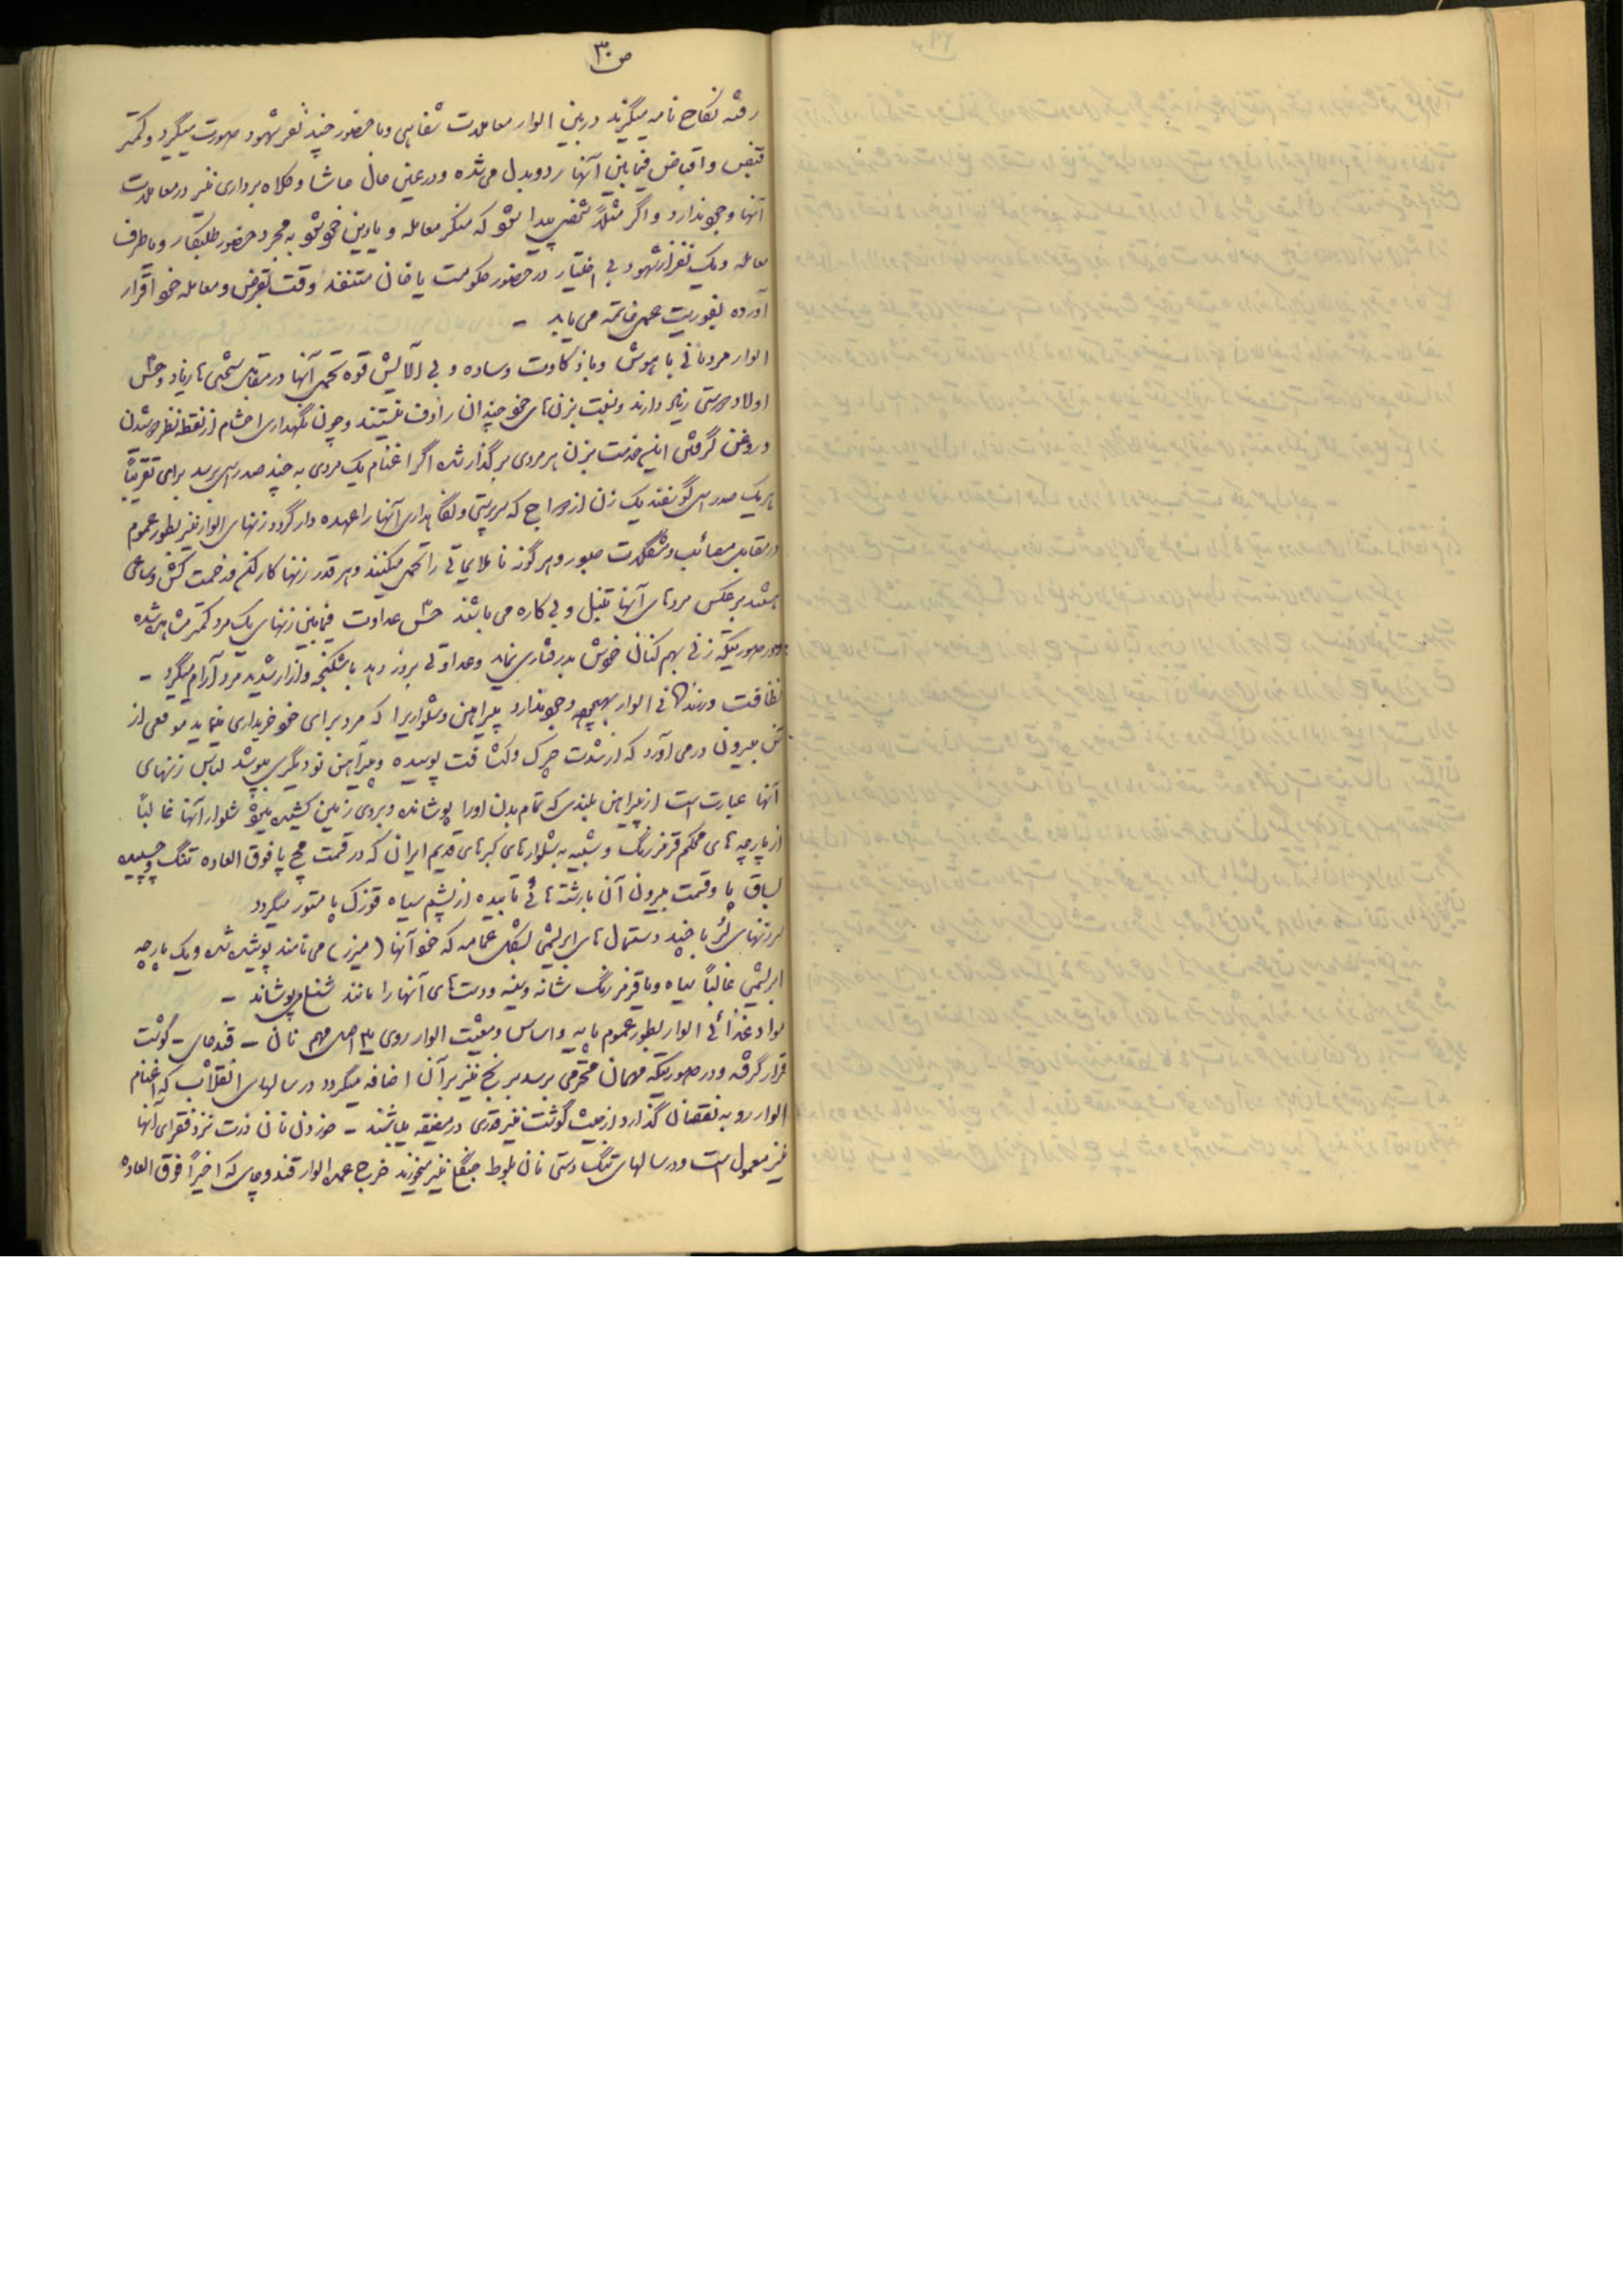 ص ۳۰
رفته نکاح نامه میگیرند در بین الوار معاملات شفاهی و با حضور چند نفر شهود صورت میگیرد و کمتر
قبض و اقباض فیمابین آنها رد و بدل می شده و در عین حال حاشا و کلاه برداری نیز در معاملات
آنها وجود ندارد و اگر مثلاً شخصی پیدا شود که منکر معامله و یا دین خود شود به مجرد حضور طلبکار و یا طرف
معامله و یک نفر از شهود بی اختیار در حضور حکومت یا خان متنفذ وقت بقرض و معامله خود اقرار
آورده بفوریت عمل خاتمه می یابد –
الوار مردمانی با هوش و با ذکاوت و ساده و بی آلایش قوه تحمل آنها در مقابل سختی ها زیاد و حس
اولاد دوستی زیاد دارند و نسبت بزن های خود چندان رئوف نیستند و چون نگهداری احشام از نقطه نظر دوشیدن
و روغن گرفتن این خدمت بزنان هر مردی برگذار شده اگر اغنام یک مردی به چند صد رأس برسد برای تقریباً
هر یک صد رأس گوسفند یک زن ازدواج که سرپرستی و نگاهداری آنها را عهده دار گردد زنهای الوار نیز بطور عموم
در مقابل مصائب و مشکلات صبور و هر گونه ناملایماتی را تحمل میکنند و هر قدر زنها کارکن و زحمت کش و ساعی
هستند برعکس مردهای آنها تنبل و بی کاره می باشند حس عداوت فیمابین زنهای یک مرد کمتر مشاهده شده
و در صورتیکه زنی بهم کنان خویش بدرفتاری نماید و عداوتی بروز دهد با شکنجه و آزار شدید مرد آرام میگیرد –
نظافت در زندگانی الوار بهیچوجه وجود ندارد پیراهن و شلواریرا که مرد برای خود خریداری مینماید موقعی از
تن بیرون در می آورد که از شدت چرک و کثافت پوسیده و پیراهن نو دیگری بپوشد لباس زنهای
آنها عبارت است از پیراهن بلندی که تمام بدن او را پوشانده و بروی زمین کشیده میشود شلوار آنها غالباً
از پارچه های محکم قرمز رنگ و شبیه به شلوارهای گبرهای قدیم ایران که در قسمت مچ پا فوق العاده تنگ و چسبیده
بساق پا و قسمت بیرون آن با رشته هائی تابیده از پشم سیاه قوزک پا مستور میگردد
سر زنهای لر با چند دستمال های ابریشمی بشکل عمامه که خود آنها (میزر) می نامند پوشیده شده و یک پارچه
ابریشمی غالباً سیاه و یا قرمز رنگ شانه و سینه و دست های آنها را مانند شنل میپوشاند –
مواد غذائی الوار بطور عموم پایه و اساس و معیشت الوار روی ۳ اصل مهم نان – قند چای – گوشت
قرار گرفته و در صورتیکه مهمان محترمی برسد برنج نیز بر آن اضافه میگردد در سالهای انقلاب که اغنام
الوار رو به نقصان گذارد از حیث گوشت نیز قدری در مضیقه میباشند – خوردن نان ذرت نزد فقرای آنها
نیز معمول است و در سالهای تنگ دستی نان بلوط جنگلی نیز میخورند خرج عمده الوار قند و چای که اخیراً فوق العاده